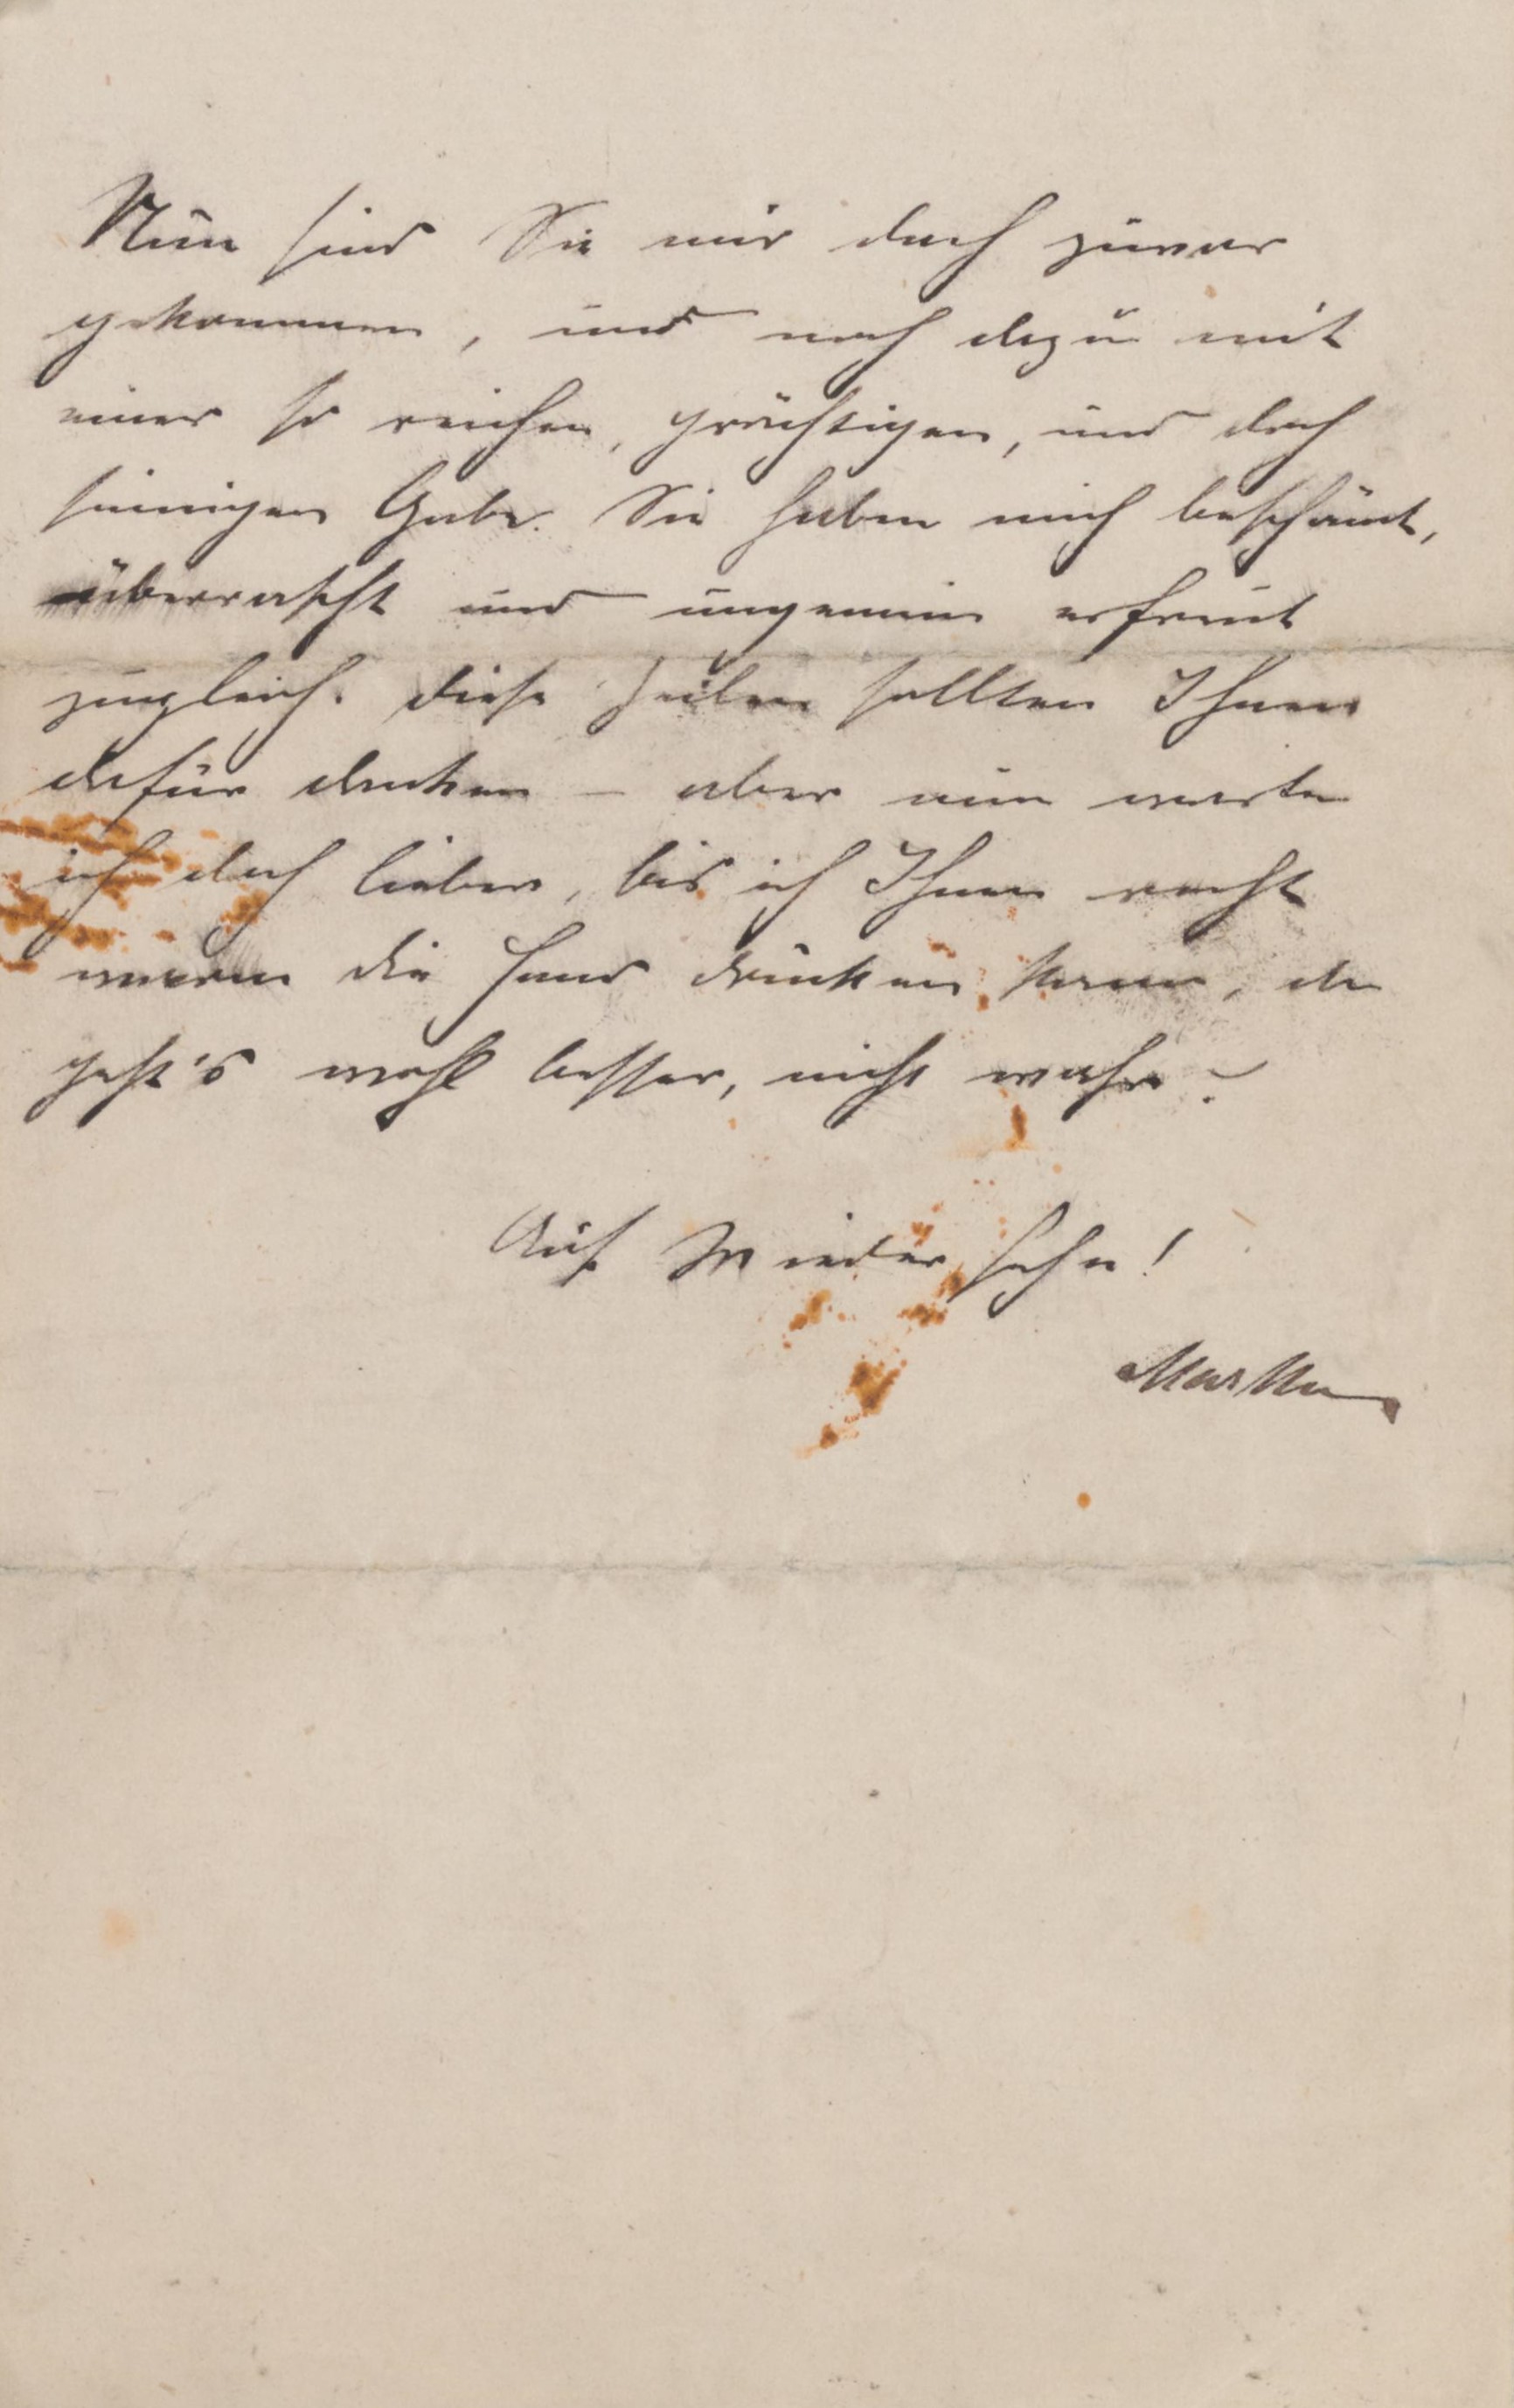 Nun sind Sie mir doch zuvor
gekommen, und noch dazu mit
einer so reichen, prächtigen, und doch
sinnigen Gabe. Sie haben mich beschämt,
überrascht und ungemein erfreut
zugleich. Diese Zeilen sollten Ihnen
dafür danken – aber nun warte
ich doch lieber, bis ich Ihnen recht
warm die Hand drücken kann, da
geht's wohl besser, nicht wahr?
Auf Wiedersehn!
Martha